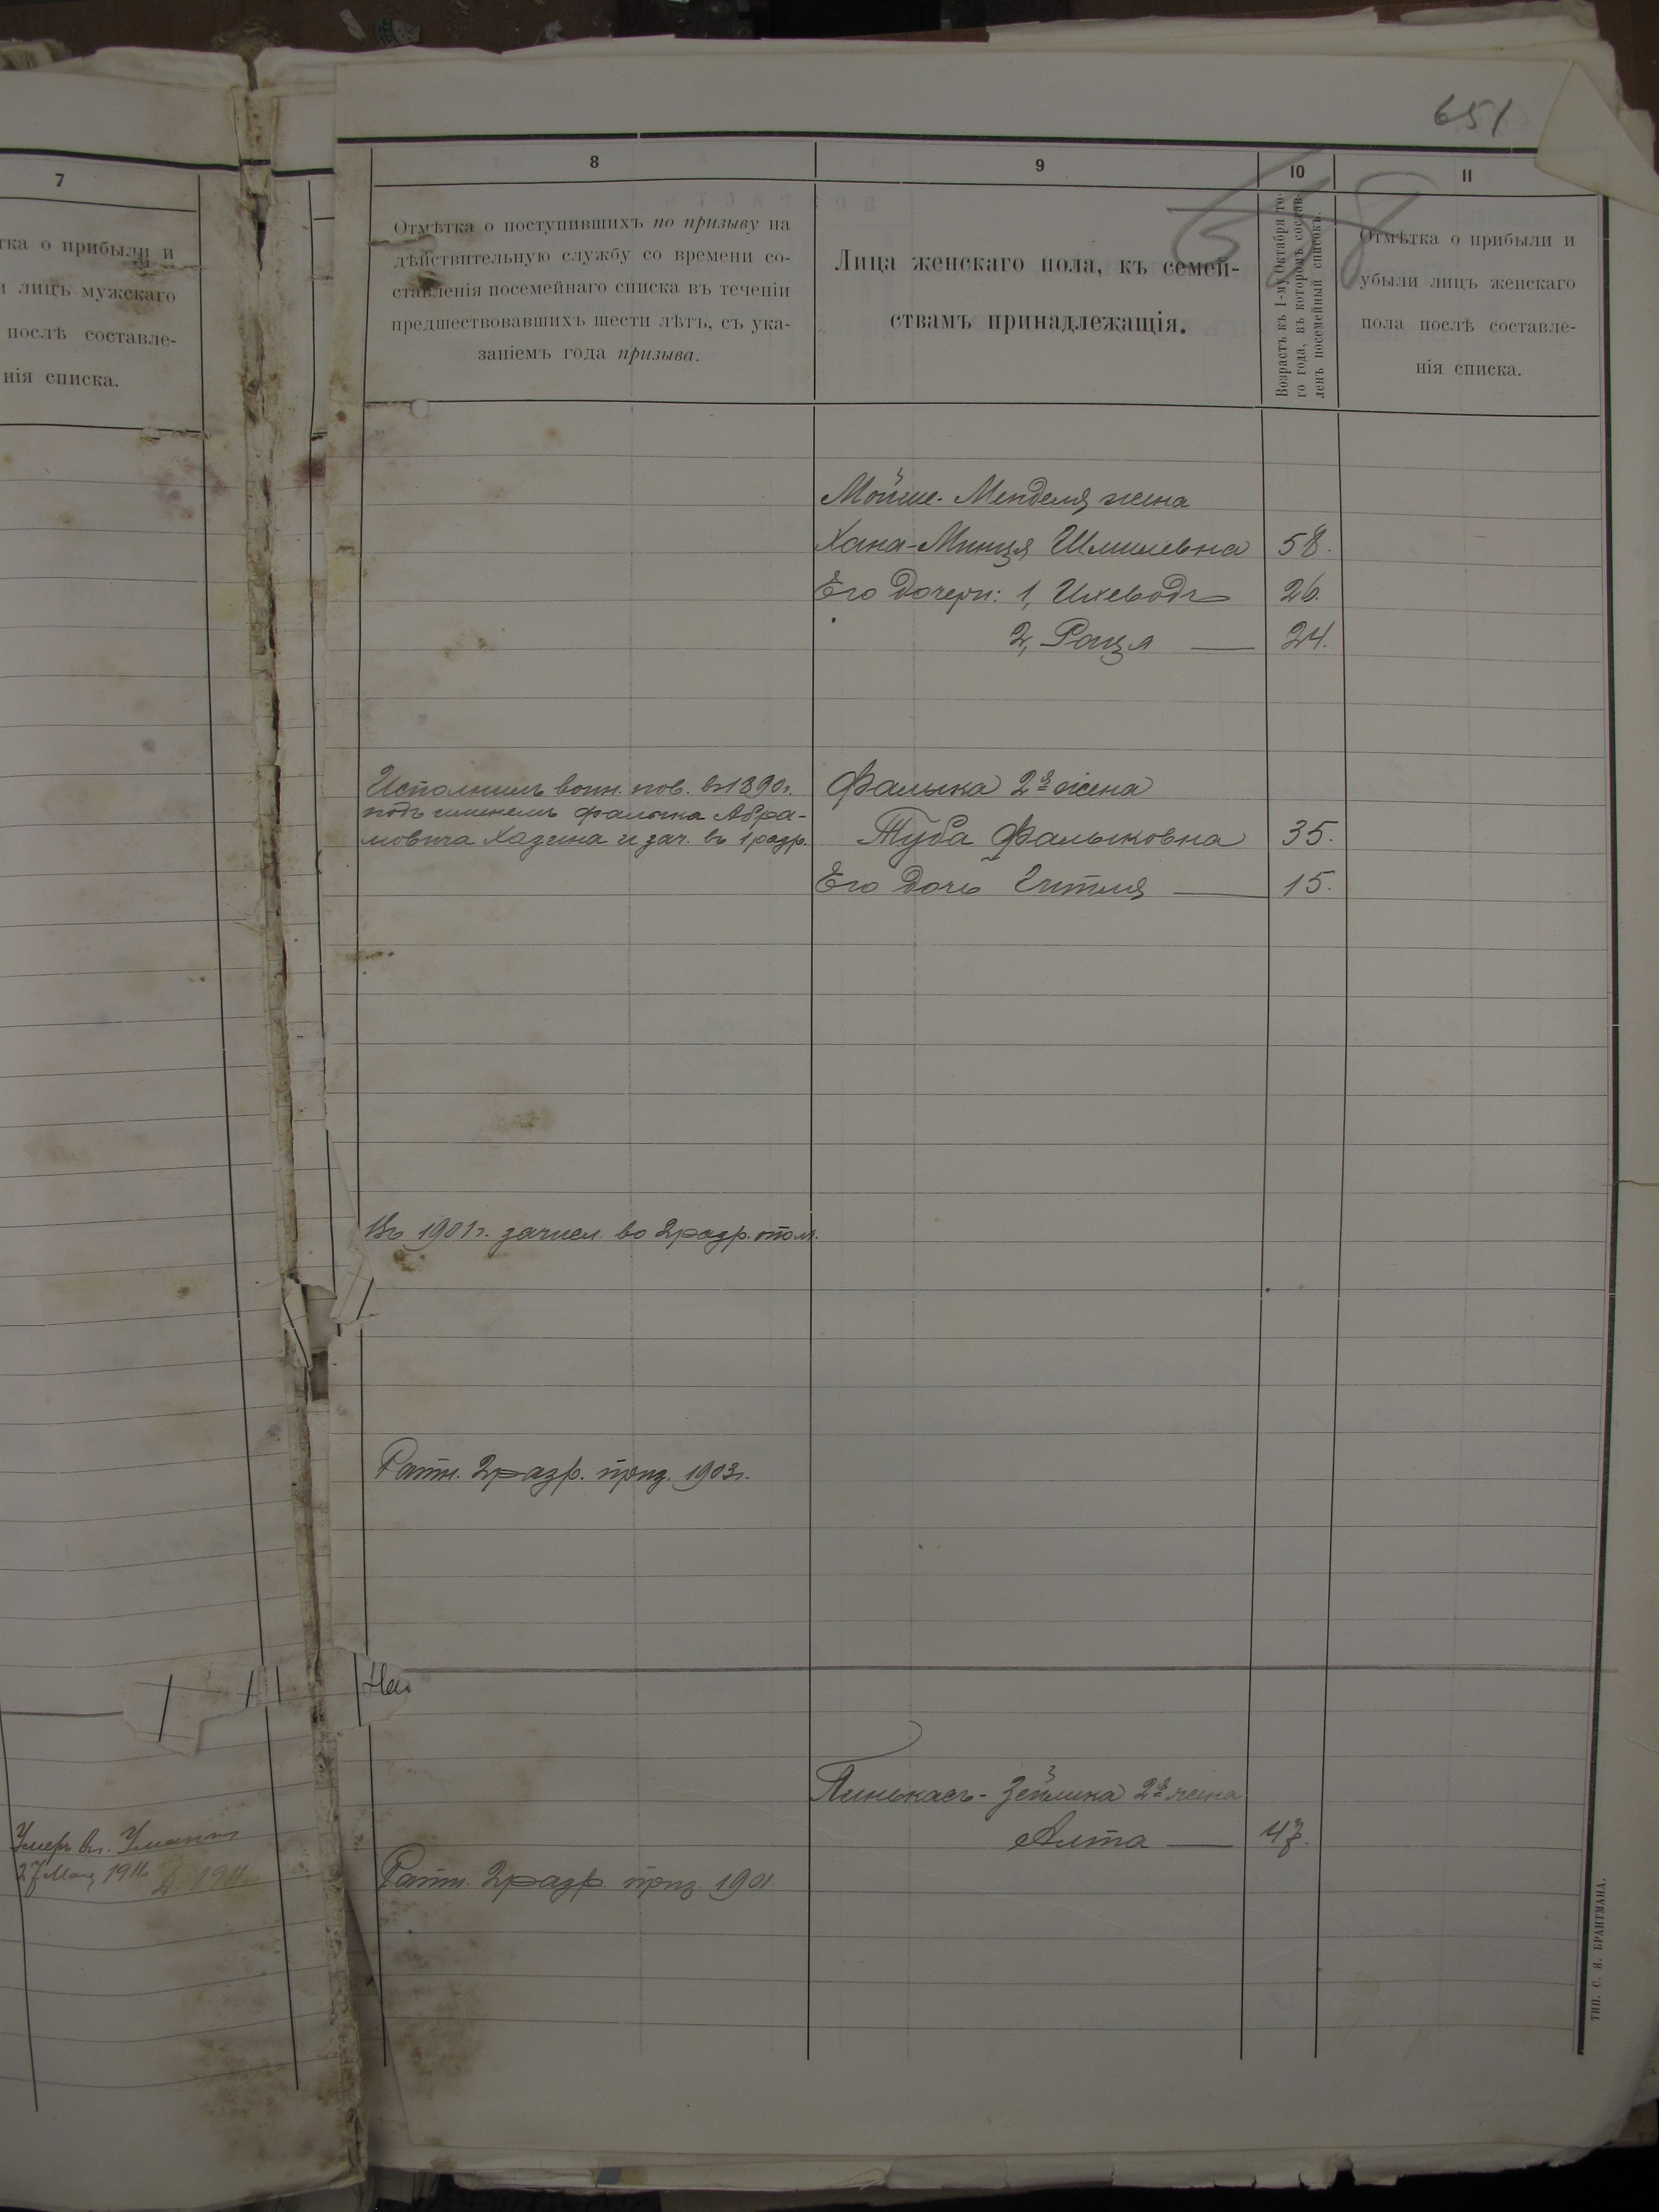 651
558
7
тка о прибыли и
и лицъ мужскаго
послѣ составле-
нія списка.
Умеръ въ г. Умани
27 Мая 1911г.
8
Отмѣтка о поступившихъ по призыву на
дѣйствительную службу со времени со-
ставленія посемейнаго списка въ теченіи
предшествовавшихъ шести лѣтъ, съ ука-
заніемъ года призыва.
9
Лица женскаго пола, къ семей-
ствамъ принадлежащія.
10
Возрастъ къ 1-му Октября то-
го года, въ которомъ состав-
ленъ посемейный списокъ.
11
Отмѣтка о прибыли и
убыли лицъ женскаго
пола послѣ составле-
нія списка.
Мойше-Менделя жена
Хана-Минця 58.
Его дочери: 1, 26.
2, Рація — 24.
Исполнилъ воин. пов. въ 1890г.
подъ именемъ Фалыка Абра-
мовича Хазина и зач. въ 1 разр.
Фалыка 2я жена
Туба Фалыковна 35.
Его дочь Гитля — 15.
Въ 1901г. зачисл. во 2 разр. опол.
Ратн. 2 разр. приз. 1903г.
На
Пинькасъ-Зейлика 2я жена
Алта — 47.
Ратн. 2 разр. приз. 1901.
ТИП. С. Я. БРАНТМАНА.